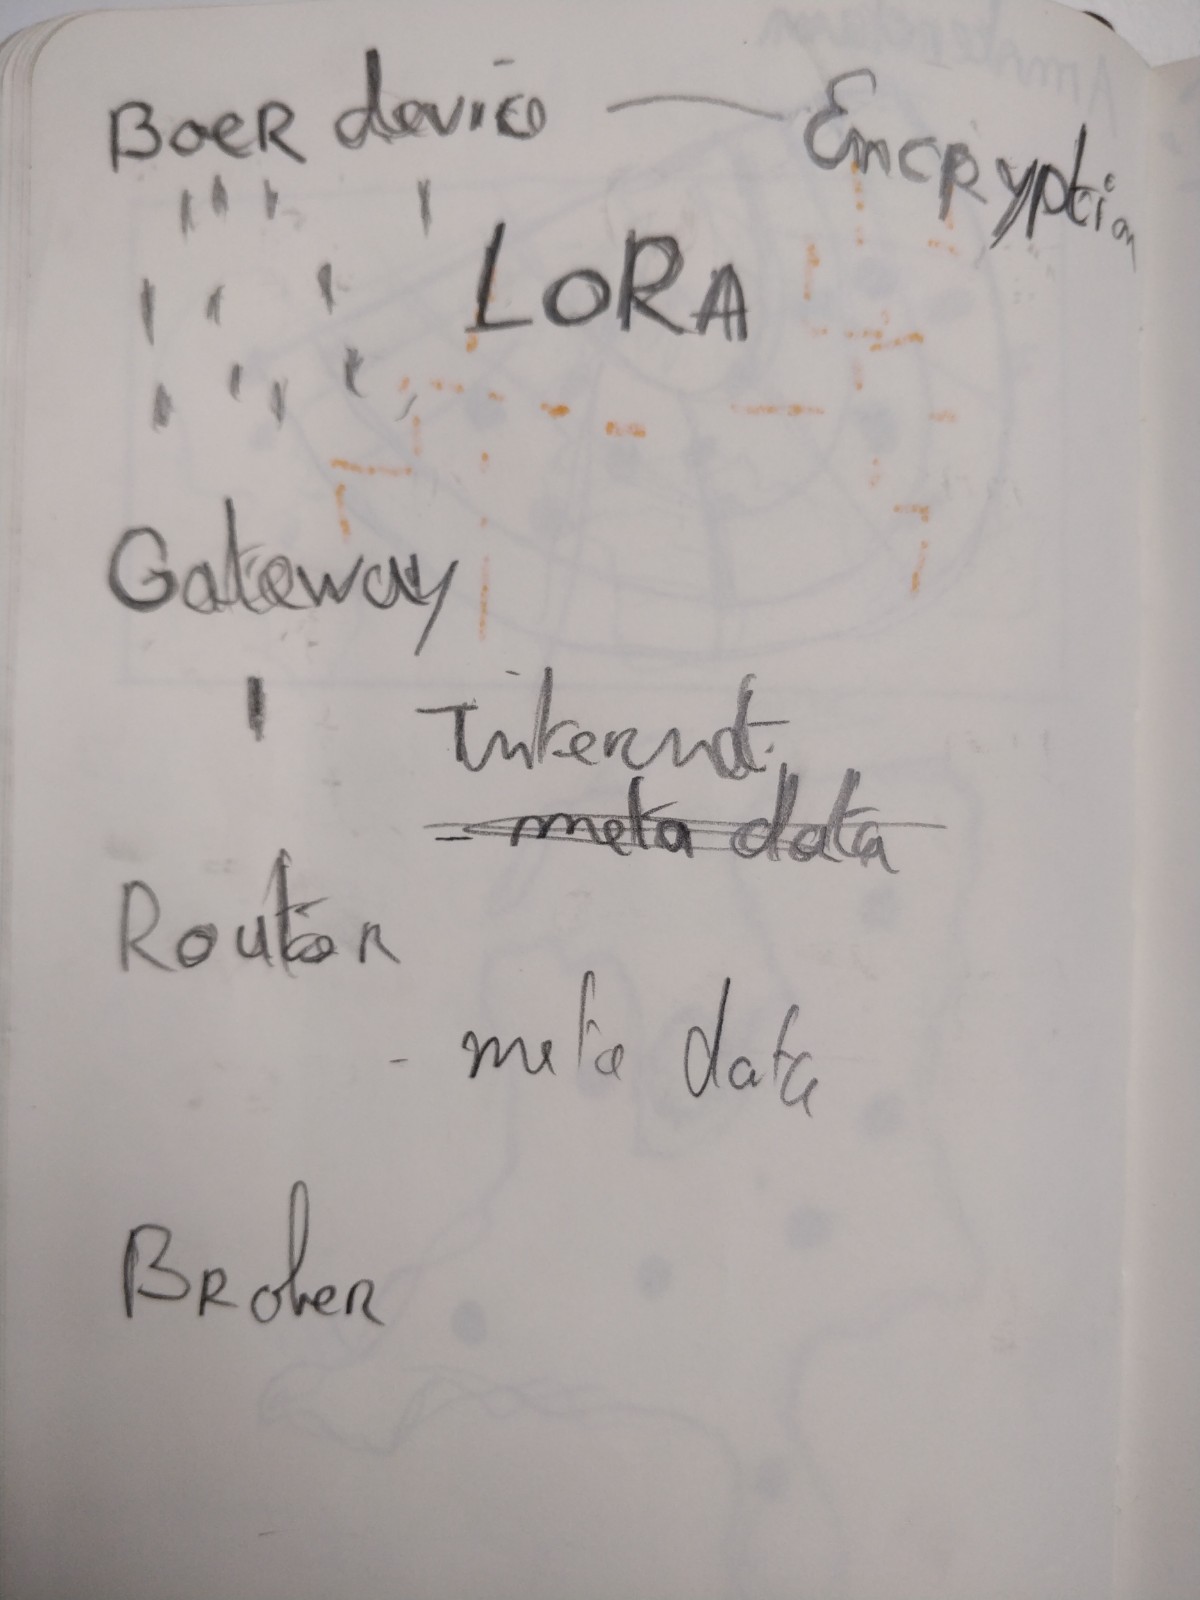 BOER device — Encryption
LORA
Gateway
Internet
- meta data
Router
- meta data
BRoker